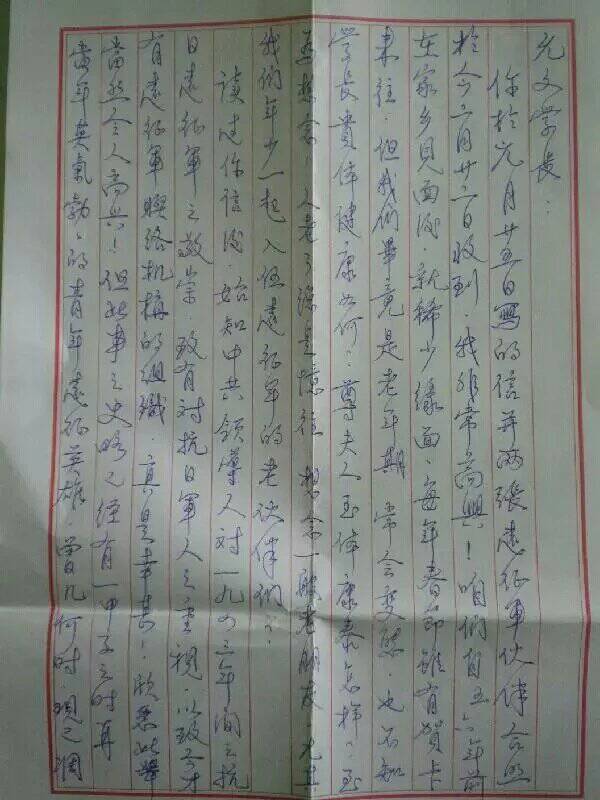 允文學長：
你於元月廿五日寫的信并两張遠征軍伙伴合照
於今二月廿二日收到．我非常高興！咱們自五六年前
在家乡見面後 就稀少緣面．每年春節雖有賀卡
来往．但我們畢竟是老年期 常会变態．也不知
学長貴体健康如何？尊夫人玉体康泰怎样？至
為想念 人老了総是憶往 想念一般老朋友 尤其
我們年少一起入伍遠征軍的老伙伴們？
讀过你信後．始知中共領導人对一九四三年間之抗
日遠征軍之敬崇．致有対抗日軍人之重視．以致今才
有遠征軍聯絡机構的組織．真是幸甚！欣悉此舉
當然令人高興！但此事之史略已經有一甲子之时再
當年英氣勃勃的青年遠征英雄．曾几何时．現已凋